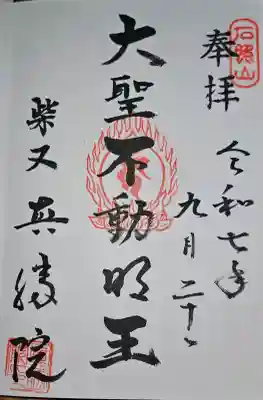 石照山
奉拝
令和七年
九月二十八
大聖不動明王
柴又真勝院